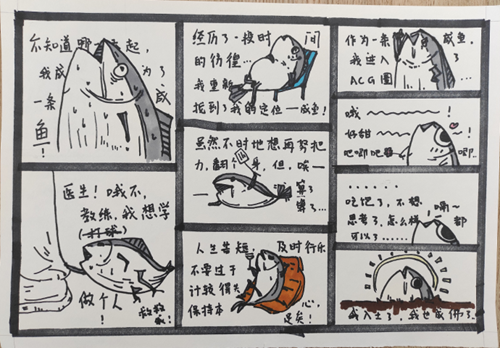 不知道哪天起,
我成为了
一条咸
鱼!
医生!哦不,
教练,我想学
(打球)
做个人!
救救我!
经历了一段时间
的彷徨…
我重新
找到了我的定位—咸鱼!
虽然不时地想再努把
力,翻个身,但,唉—
算了
算了…
人生苦短,及时行乐
不要过于
计较得失
保持本心,
足矣!
作为一条咸鱼,
我进入了
ACG圈…
哦
好甜
吧唧吧唧
!
……
吃饱了,不想
思考了,怎么样都
可以了……
嗝~
!
咸入土了,我也成佛了